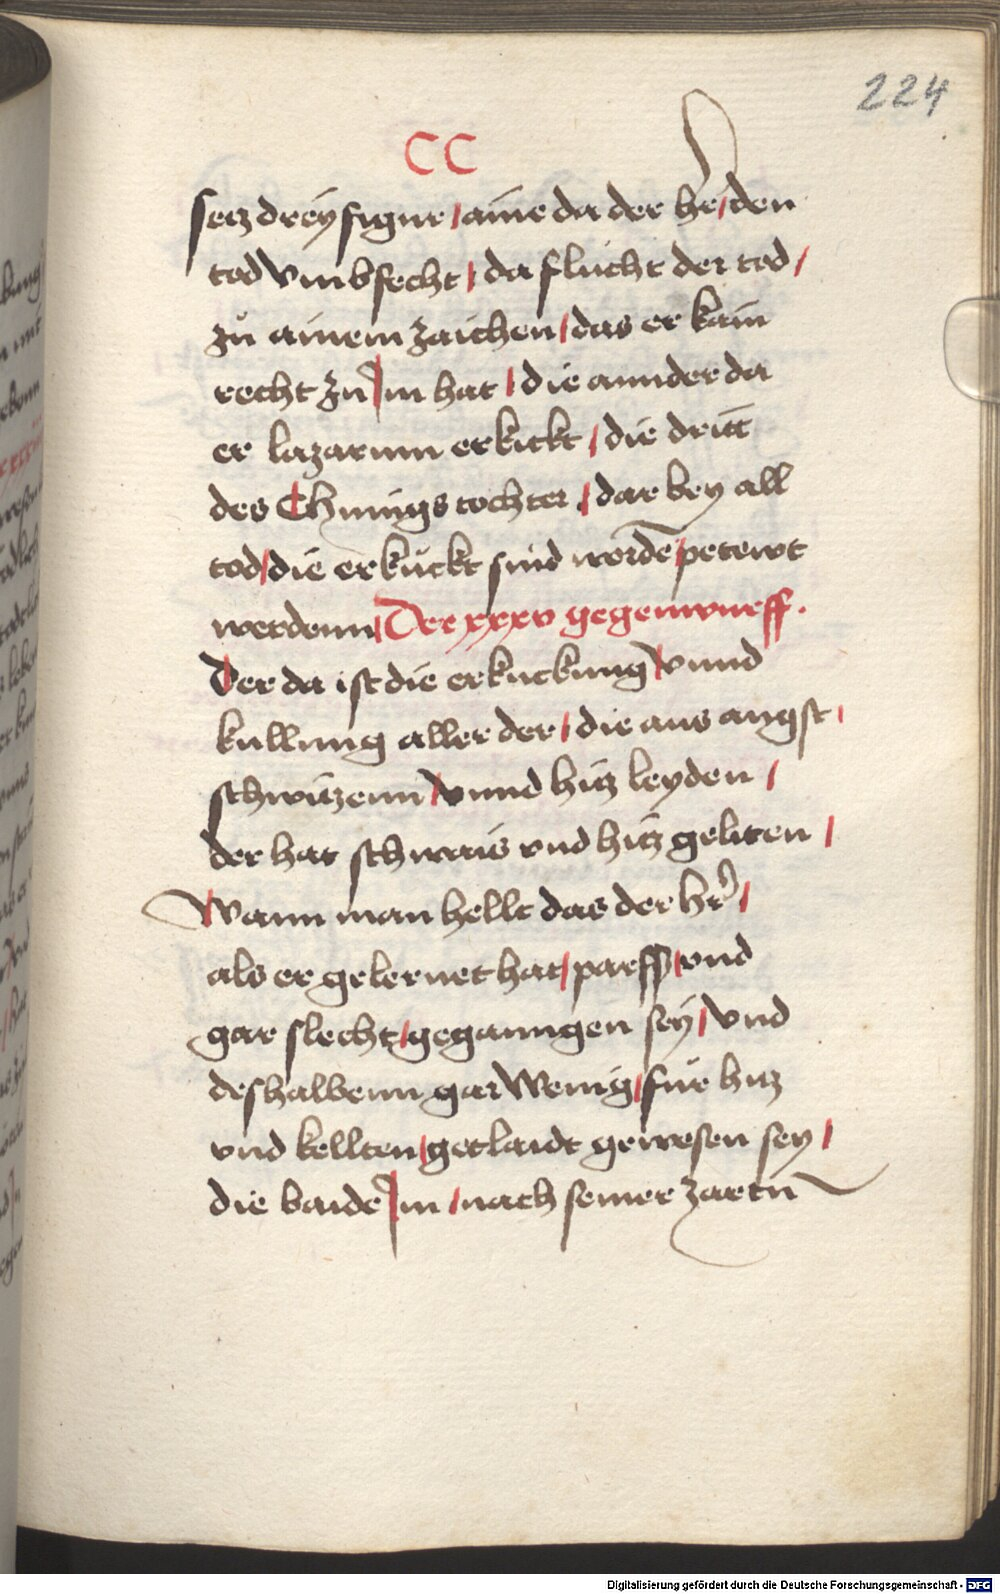 224
CC
setz dreÿ figur / aine da der hr̄ / den
tod vmbfecht / da flücht der tod /
zů ainem zaichen / das er kain
recht zu Im hat / die annder da
er lazarum erkickt / die dritt
des Chünigs tochter / dar bey all
tod / die erkückt sind wordē / petewt
werdenn / Der xxxv gegenwurff.
Der da ist die erkuckung / vnnd
küllung aller der / die aus angst /
schwitzenn / vnnd hitz leyden /
der hat schwais vnd hitz geliten /
Wann man hellt das der hr̄ /
als er gelernet hat / parfſs / vnd
gar slecht / geganngen seÿ / vnd
deshalbenn gar Wenig / für hitz
vnd kellten / geclaidt gewesen sey /
die baide Im / nach seiner zartn̄
Digitalisierung gefördert durch die Deutsche Forschungsgemeinschaft - DFG